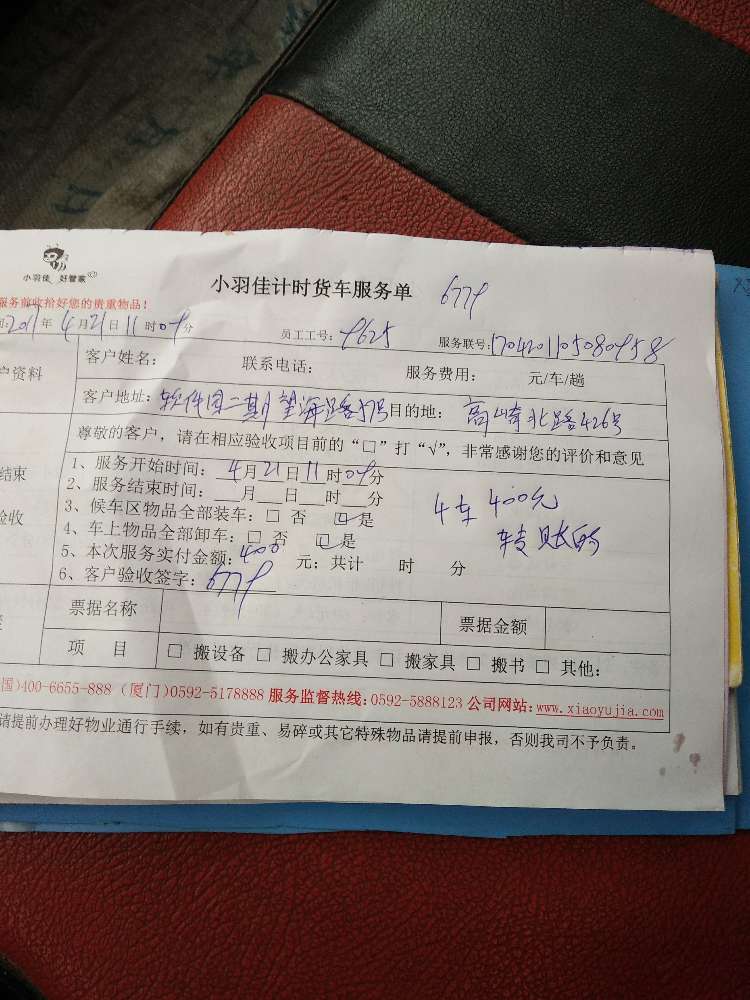 小羽佳 好管家
小羽佳计时货车服务单 6779
服务前收拾好您的贵重物品！
间:2017年4月21日11时09分 员工工号: 9625 服务联号:1704201105080958
户资料 客户姓名： 联系电话： 服务费用： 元/车/趟
客户地址：软件园二期望海路 号 目的地：高崎北路426号
尊敬的客户，请在相应验收项目前的“□”打“√”，非常感谢您的评价和意见
1、服务开始时间：4月21日11时09分
结束 2、服务结束时间：___月___日___时___分
验收 3、候车区物品全部装车：□ 否 ☑ 是 4车 400元
4、车上物品全部卸车：□ 否 ☑ 是 转账的
5、本次服务实付金额：400 元；共计 时 分
6、客户验收签字：6779
票据名称 票据金额
项 目 □ 搬设备 □ 搬办公家具 □ 搬家具 □ 搬书 □ 其他：
国)400-6655-888（厦门)0592-5178888 服务监督热线:0592-5888123 公司网站:www.xiaoyujia.com
请提前办理好物业通行手续，如有贵重、易碎或其它特殊物品请提前申报，否则我司不予负责。